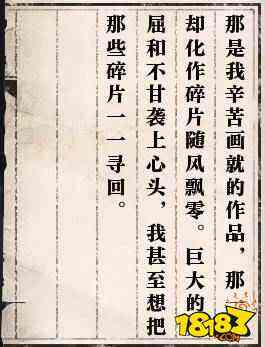 那是我辛苦画就的作品，那
却化作碎片随风飘零。巨大的
屈和不甘袭上心头，我甚至想把
那些碎片一一寻回。
18183